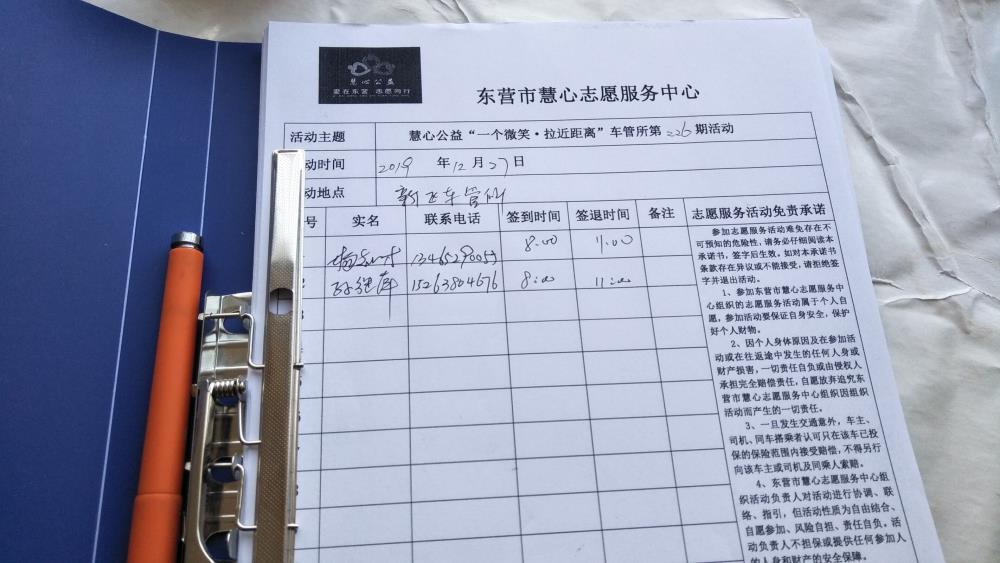 慧心公益
爱在东营 志愿同行
东营市慧心志愿服务中心
活动主题 慧心公益“一个微笑·拉近距离”车管所第226期活动
动时间 2019 年 12 月 27 日
动地点 车管所
号 实名 联系电话 签到时间 签退时间 备注 志愿服务活动免责承诺
8:00 11:00
孙继库 15263804676 8:00 11:00
参加志愿服务活动难免存在不
可预知的危险性，请务必仔细阅读本
承诺书，签字后生效。如对本承诺书
条款存在异议或不能接受，请拒绝签
字并退出活动。
1、参加东营市慧心志愿服务中
心组织的志愿服务活动属于个人自
愿，参加活动要保证自身安全，保护
好个人财物。
2、因个人身体原因及在参加活
动或在往返途中发生的任何人身或
财产损害，一切责任自负或由侵权人
承担完全赔偿责任，自愿放弃追究东
营市慧心志愿服务中心组织因组织
活动而产生的一切责任。
3、一旦发生交通意外，车主、
司机、同车搭乘者认可只在该车已投
保的保险范围内接受赔偿，不得另行
向该车主或司机及同乘人索赔。
4、东营市慧心志愿服务中心组
织活动负责人对活动进行协调、联
络、指引，但活动性质为自由结合、
自愿参加、风险自担、责任自负。活
动负责人不担保或提供任何参加人
的人身和财产的安全保障。